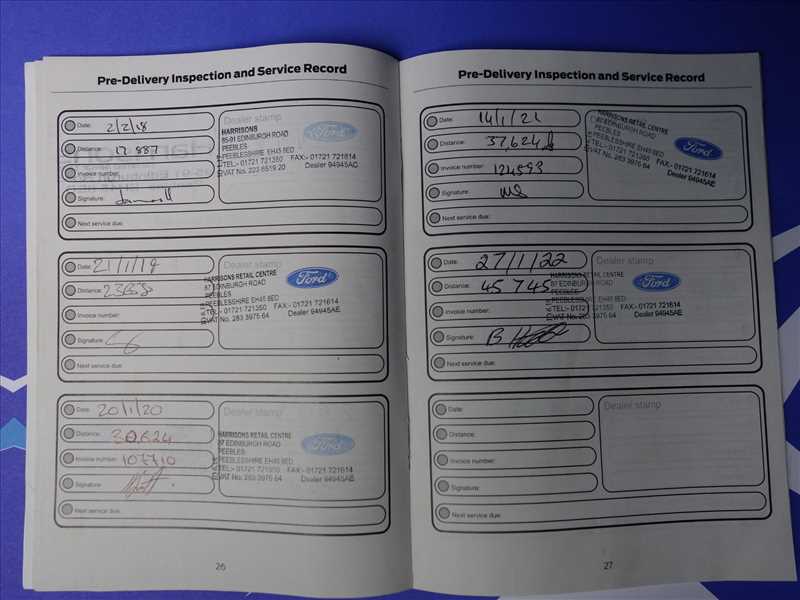 Pre-Delivery Inspection and Service Record
Date: 2/2/18
Distance: 17.887
Invoice number:
Signature:
Next service due:
Dealer stamp
HARRISONS
85-91 EDINBURGH ROAD
PEEBLES
PEEBLESSHIRE EH45 8ED
TEL:- 01721 721350 FAX:- 01721 721614
VAT No. 283 6519 20 Dealer 94945AC
Ford
Date: 21/1/19
Distance: 23858
Invoice number:
Signature
Next service due:
Dealer stamp
HARRISONS RETAIL CENTRE
87 EDINBURGH ROAD
PEEBLES
PEEBLESSHIRE EH45 8ED
TEL:- 01721 721350 FAX:- 01721 721614
VAT No. 283 3975 64 Dealer 94945AE
Ford
Date: 20/1/20
Distance: 30,624
Invoice number: 107710
Signature
Next service due:
Dealer stamp
HARRISONS RETAIL CENTRE
87 EDINBURGH ROAD
PEEBLES
PEEBLESSHIRE EH45 8ED
TEL:- 01721 721350 FAX:- 01721 721614
VAT No. 283 3975 64 Dealer 94945AE
Ford
26
Pre-Delivery Inspection and Service Record
Date: 14/1/21
Distance: 37,624
Invoice number: 124593
Signature:
Next service due:
HARRISONS RETAIL CENTRE
87 EDINBURGH ROAD
PEEBLES
PEEBLESSHIRE EH45 8ED
TEL:- 01721 721350 FAX:- 01721 721614
VAT No. 283 3975 64 Dealer 94945AE
Ford
Date: 27/1/22
Distance: 45745
Invoice number:
Signature:
Next service due:
Dealer stamp
HARRISONS RETAIL CENTRE
87 EDINBURGH ROAD
PEEBLES
PEEBLESSHIRE EH45 8ED
TEL:- 01721 721350 FAX:- 01721 721614
VAT No. 283 3975 64 Dealer 94945AE
Ford
Date:
Distance:
Invoice number:
Signature:
Next service due:
Dealer stamp
27